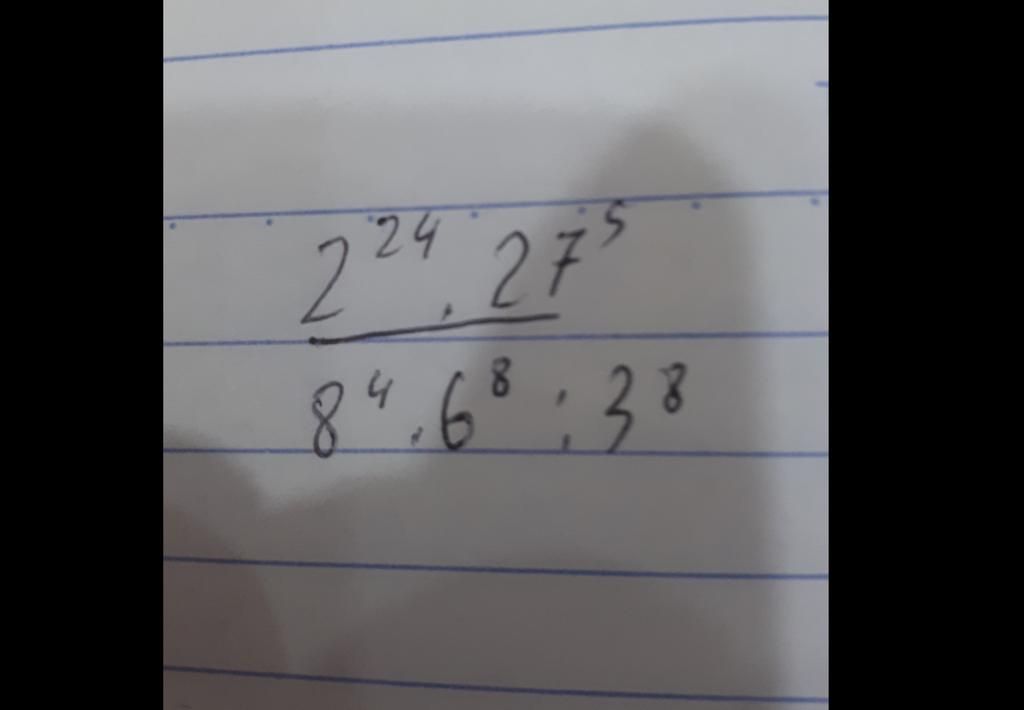 2²⁴ . 27⁵
8⁴ . 6⁸ : 3⁸